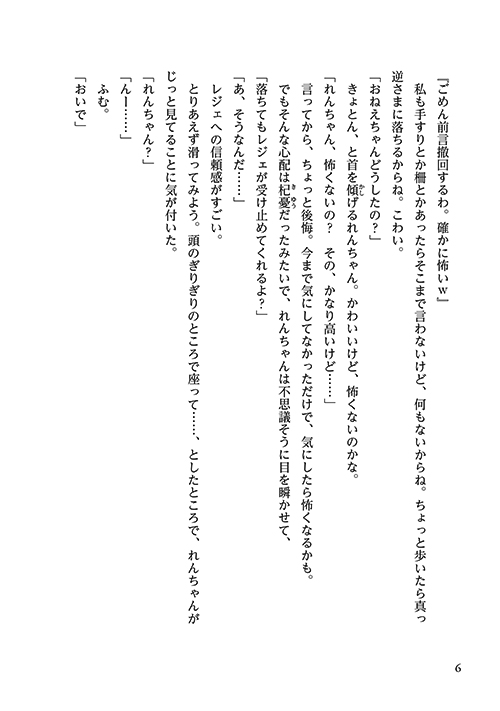 『ごめん前言撤回するわ。確かに怖いｗ』
私も手すりとか柵とかあったらそこまで言わないけど、何もないからね。ちょっと歩いたら真っ
逆さまに落ちるからね。こわい。
「おねえちゃんどうしたの？」
きょとん、と首を傾げるれんちゃん。かわいいけど、怖くないのかな。
「れんちゃん、怖くないの？　その、かなり高いけど……」
言ってから、ちょっと後悔。今まで気にしてなかっただけで、気にしたら怖くなるかも。
でもそんな心配は杞憂だったみたいで、れんちゃんは不思議そうに目を瞬かせて、
「落ちてもレジェが受け止めてくれるよ？」
「あ、そうなんだ……」
レジェへの信頼感がすごい。
とりあえず滑ってみよう。頭のぎりぎりのところで座って……、としたところで、れんちゃんが
じっと見てることに気が付いた。
「れんちゃん？」
「んー……」
ふむ。
「おいで」
6